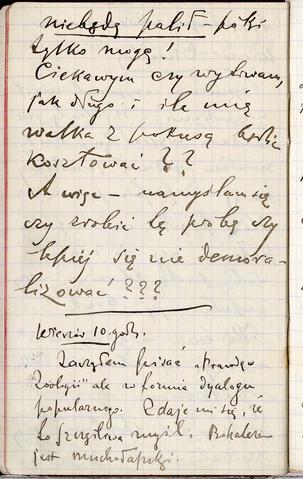 niebędę palił - póki
tylko mogę!
Ciekawym czy wytrwam,
jak długo i ile mię
walka z pokusą będzie
kosztować ??
A więc - namyślam się
czy zrobić tę próbę czy
lepiej się nie demora-
lizować ???
Wieczór 10 godz.
Zacząłem pisać "Prawdę
Zoologii" ale w formie dyalogu
popularnego. Zdaje mi się, że
to szczęśliwa myśl. Bohaterem
jest muchołapski.